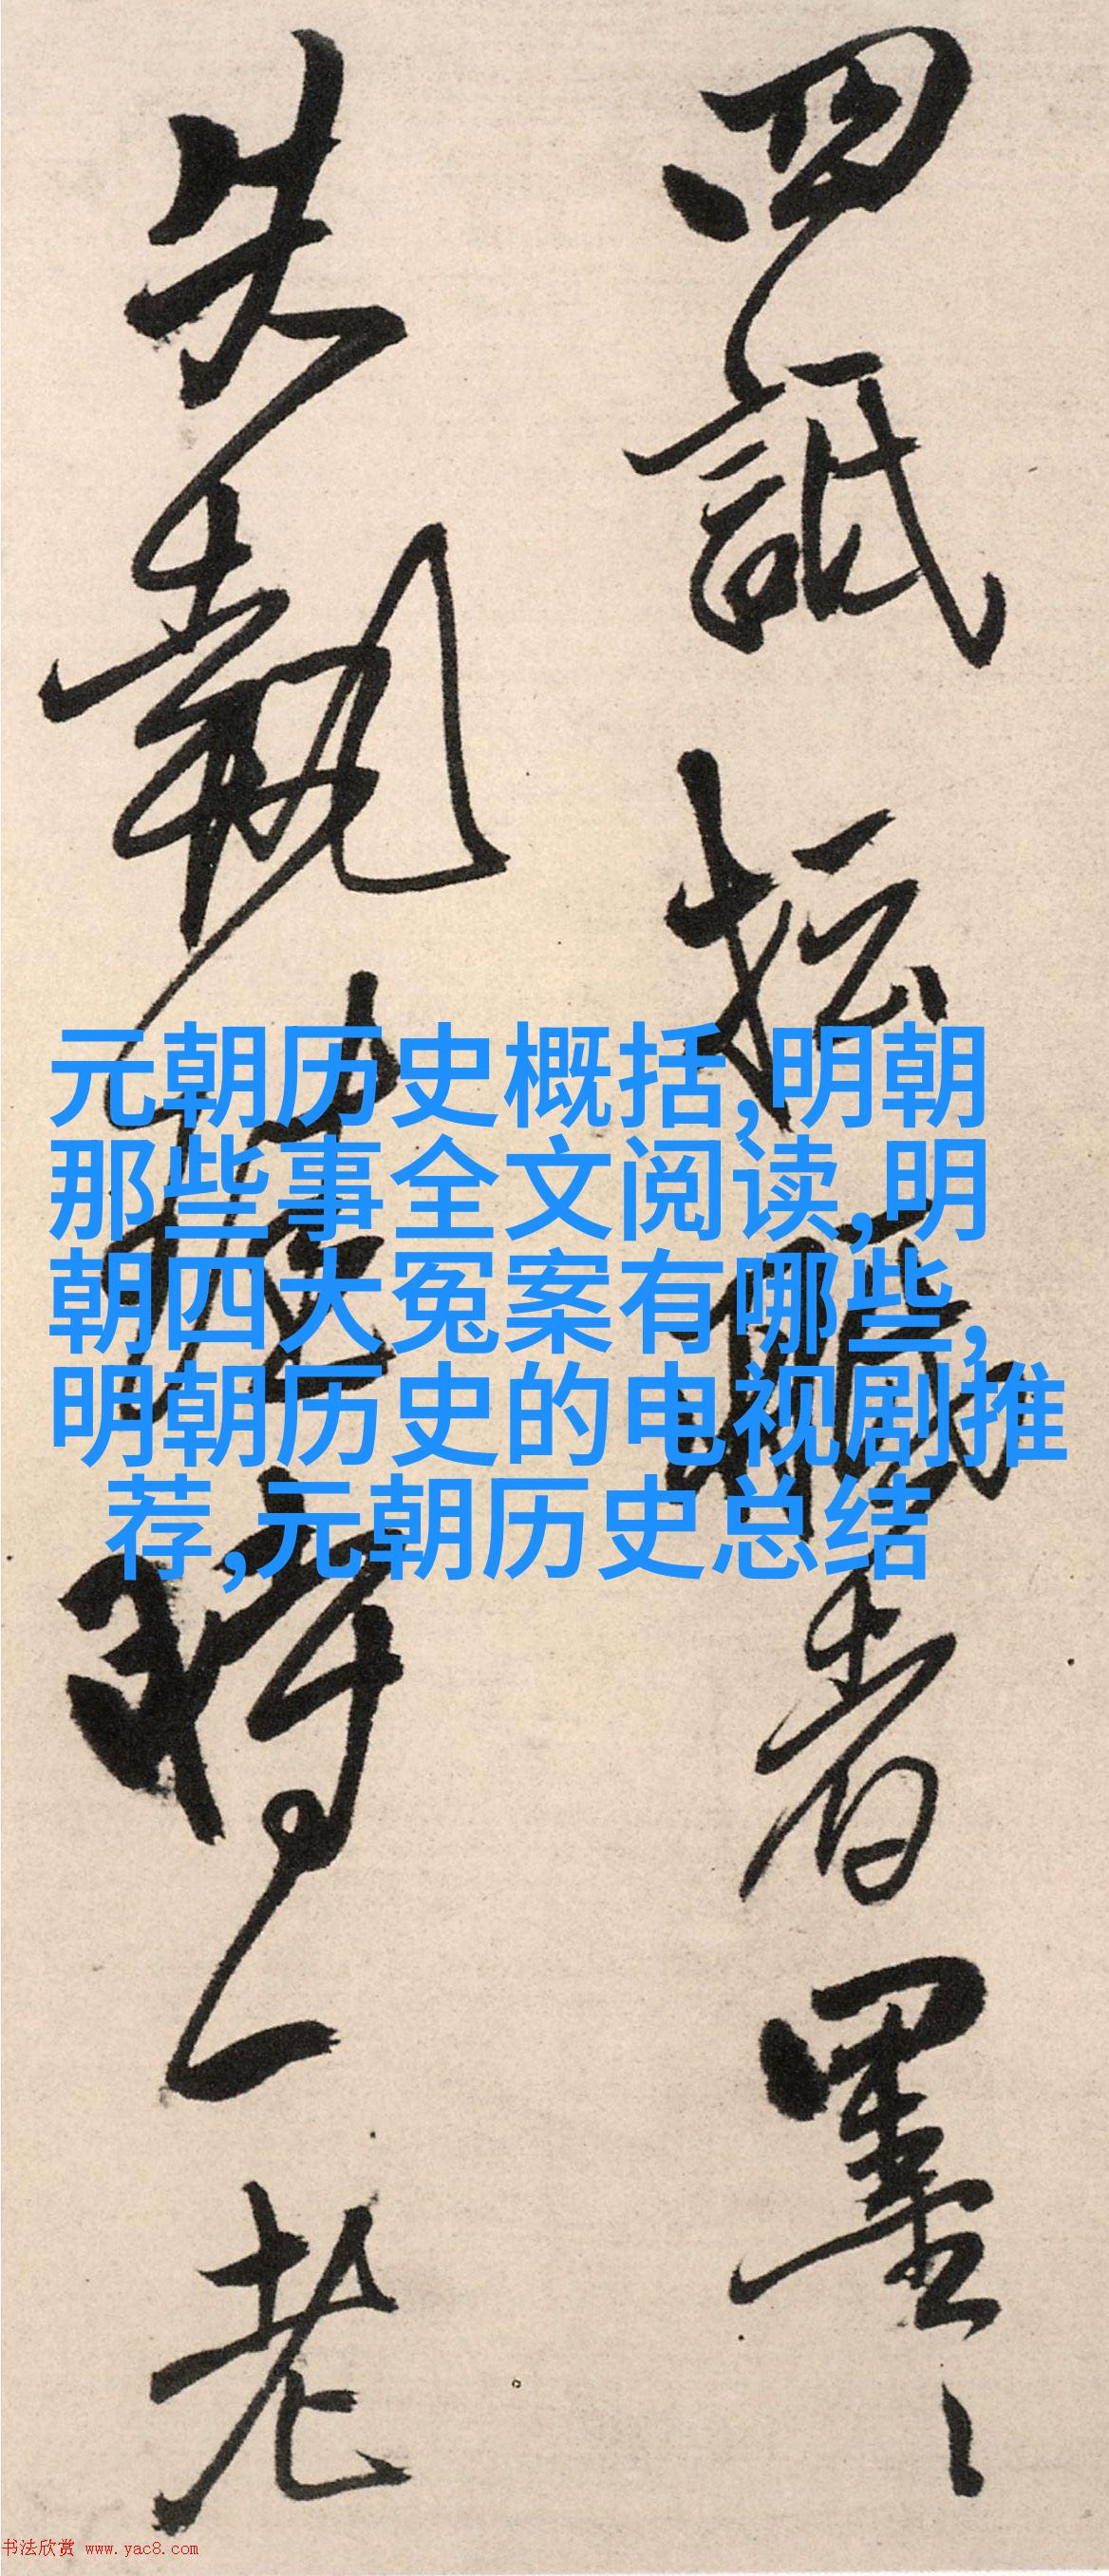 四詆坛
者墨〻
失執
時一老
元朝历史概括,明朝
那些事全文阅读,明
朝四大冤案有哪些,
明朝历史的电视剧推
荐,元朝历史总结
书法欣赏 www.yac8.com